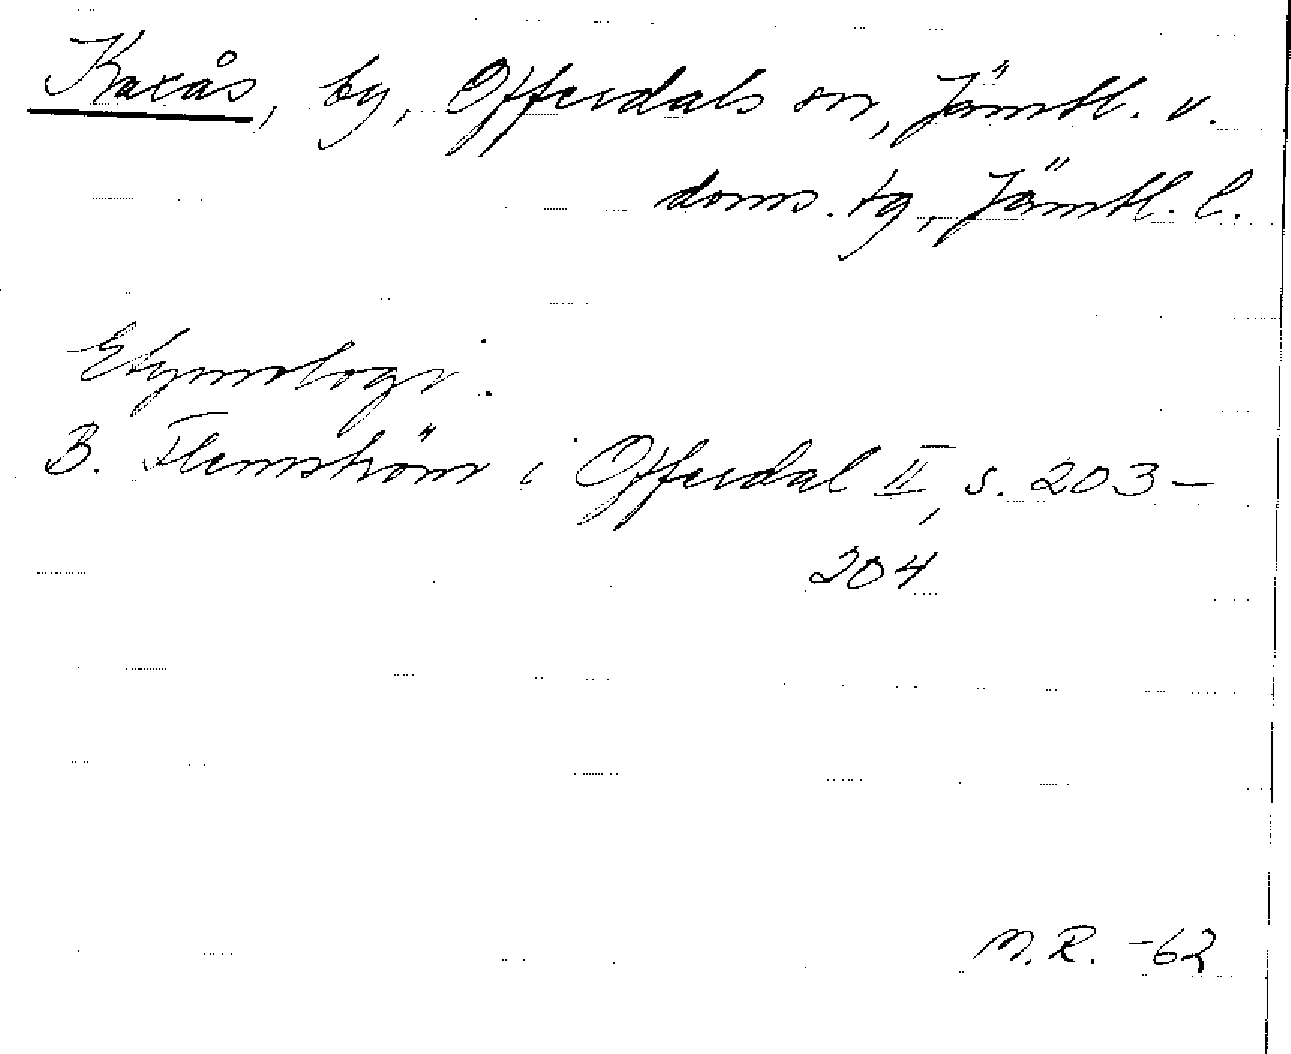 Kaxås, by, Offerdals sn, Jämtl. v.
doms. tg, Jämtl. l.
Etymologi:
B. Flemström i Offerdal II, s. 203–
204
M.R. -62